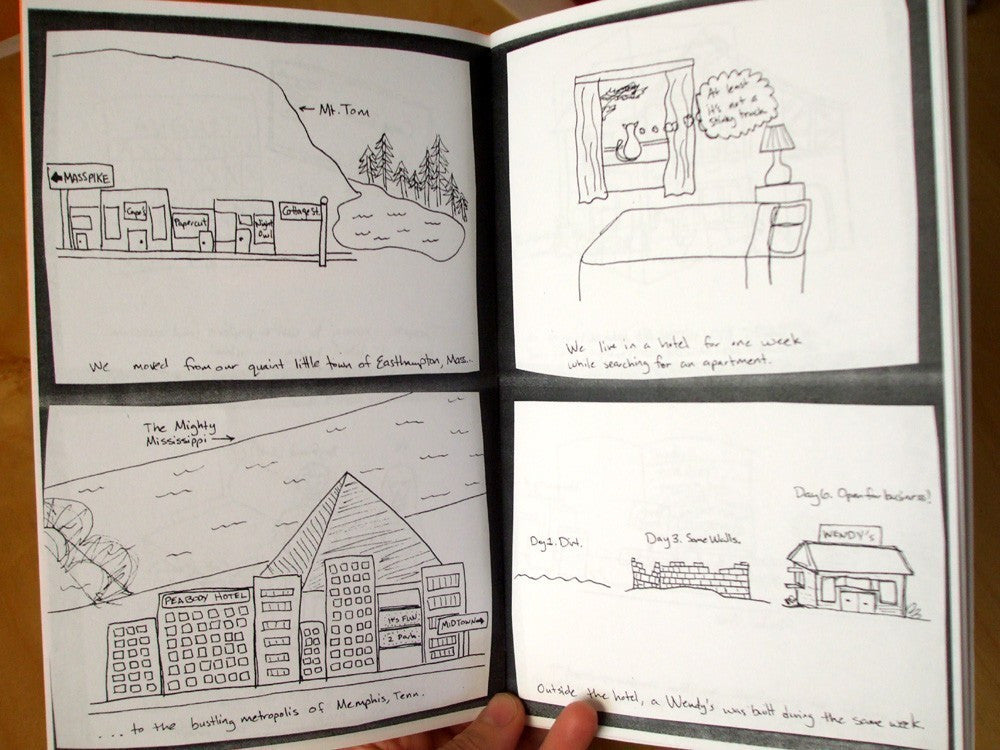 ← Mt. Tom
← MASSPIKE
Papercut
Night
Owl
Cottage St.
We moved from our quaint little town of Easthampton, Mass...
The Mighty
Mississippi →
PEABODY HOTEL
It's FUN
2 Park
MIDTOWN→
... to the bustling metropolis of Memphis, Tenn.
At least
it's not a
stinky truck
We live in a hotel for one week
while searching for an apartment.
Day 1. Dirt.
Day 3. Some Walls.
Day 6. Open for business!
WENDY'S
Outside the hotel, a Wendy's was built during the same week.